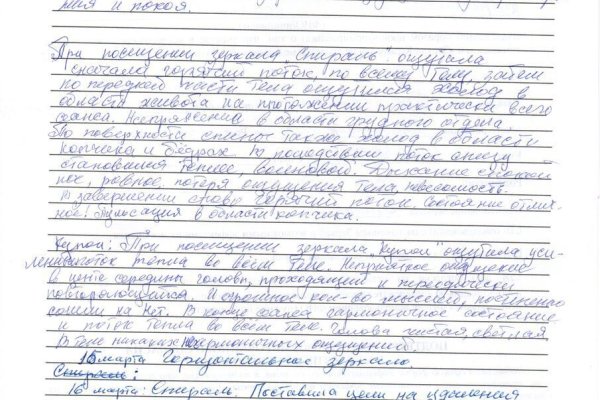 мия и покоя.
При посещении зеркала „Спираль" ощутила
сначала горячий поток, по всему телу, затем
по передней части тела ощущался холод в
области живота на протяжении практически всего
сеанса. Напряжение в области грудного отдела.
По поверхности спины также холод в области
копчика и бедрах. В последствии поток снизу
становился теплее, волновой. Дыхание спокой
ное, ровное, потеря ощущения тела, невесомость.
В завершении снова горячий поток. Состояние отлич-
ное. Пульсация в области копчика.
Купол: При посещении зеркала „Купол" ощутила уси-
ление поток тепла во всем теле. Неприятное ощущение
в центе середины головы, проходящий и периодически
повторяющийся. И огромное кол-во мыслей, постепенно
сошли на нет. В конце сеанса гармоничное состояние
и поток тепла во всем теле. Голова чистая, светлая,
В теле никаких негармоничных ощущений.
15 марта Горизонтальное зеркало.
Спираль:
16 марта: Спираль. Поставила цели на удаления